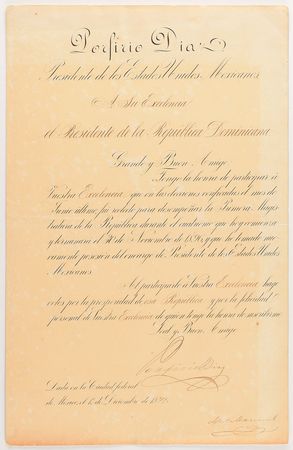 Porfirio Diaz
Presidente de los Estados Unidos Mexicanos,
A Su Excelencia
el Presidente de la República Dominicana
Grande y Buen Amigo:
Tengo la honra de participar á
Vuestra Excelencia que en las elecciones verificadas el mes de
Junio último, fuí reelecto para desempeñar la Primera Magis
tratura de la República durante el cuatrienio que hoy comienza
y termina el 30 de Noviembre de y que he tomado nue
vamente posesión del encargo de Presidente de los Estados Unidos
Mexicanos.
Al participarlo á Vuestra Excelencia hago
votos por la prosperidad de esa República y por la felicidad
personal de Vuestra Excelencia de quien tengo la honra de suscribirme
Leal y Buen Amigo
Porfirio Diaz
Dada en la Ciudad federal
de México, el 1º de Diciembre de
Mariscal